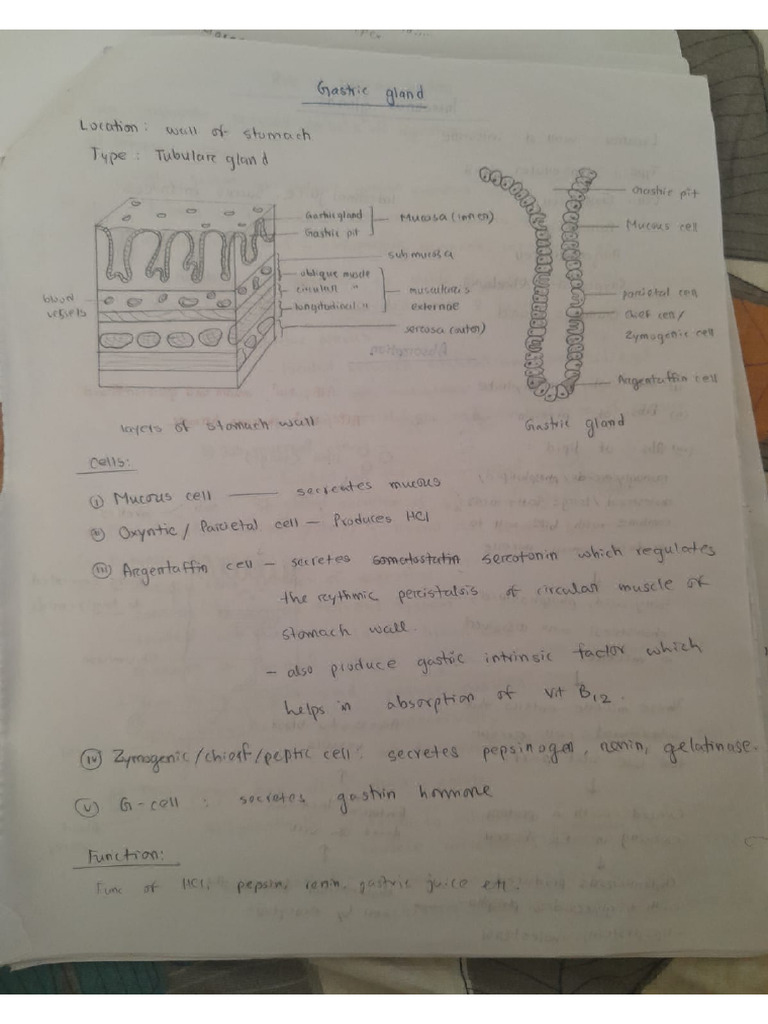 Gastric gland
Location: wall of stomach
Type: Tubulare gland
Gastric gland
Gastric pit
Mucosa (innen)
sub mucosa
oblique muscle
circular "
longitudinal "
muscularis
externae
sercosa (outer)
blood
vessels
layers of stomach wall
Gastric pit
Mucous cell
parietal cell
chief cell/
Zymogenic cell
Argentaffin cell
Gastric gland
Cells:
(i) Mucous cell — secreates mucous
(ii) Oxyntic / Parcietal cell – Produces HCl
(iii) Argentaffin cell – secretes sercotonin which regulates
the rcythmic percistalsis of circular muscle of
stomach wall.
– also produce gastric intrinsic factor which
helps in absorption of vit B12.
(iv) Zymogenic/chief/peptic cell: secretes pepsinogen, renin, gelatinase.
(v) G-cell : secretes gastrin hormone
Function:
Func of HCl, pepsin, renin, gastric juice etc.